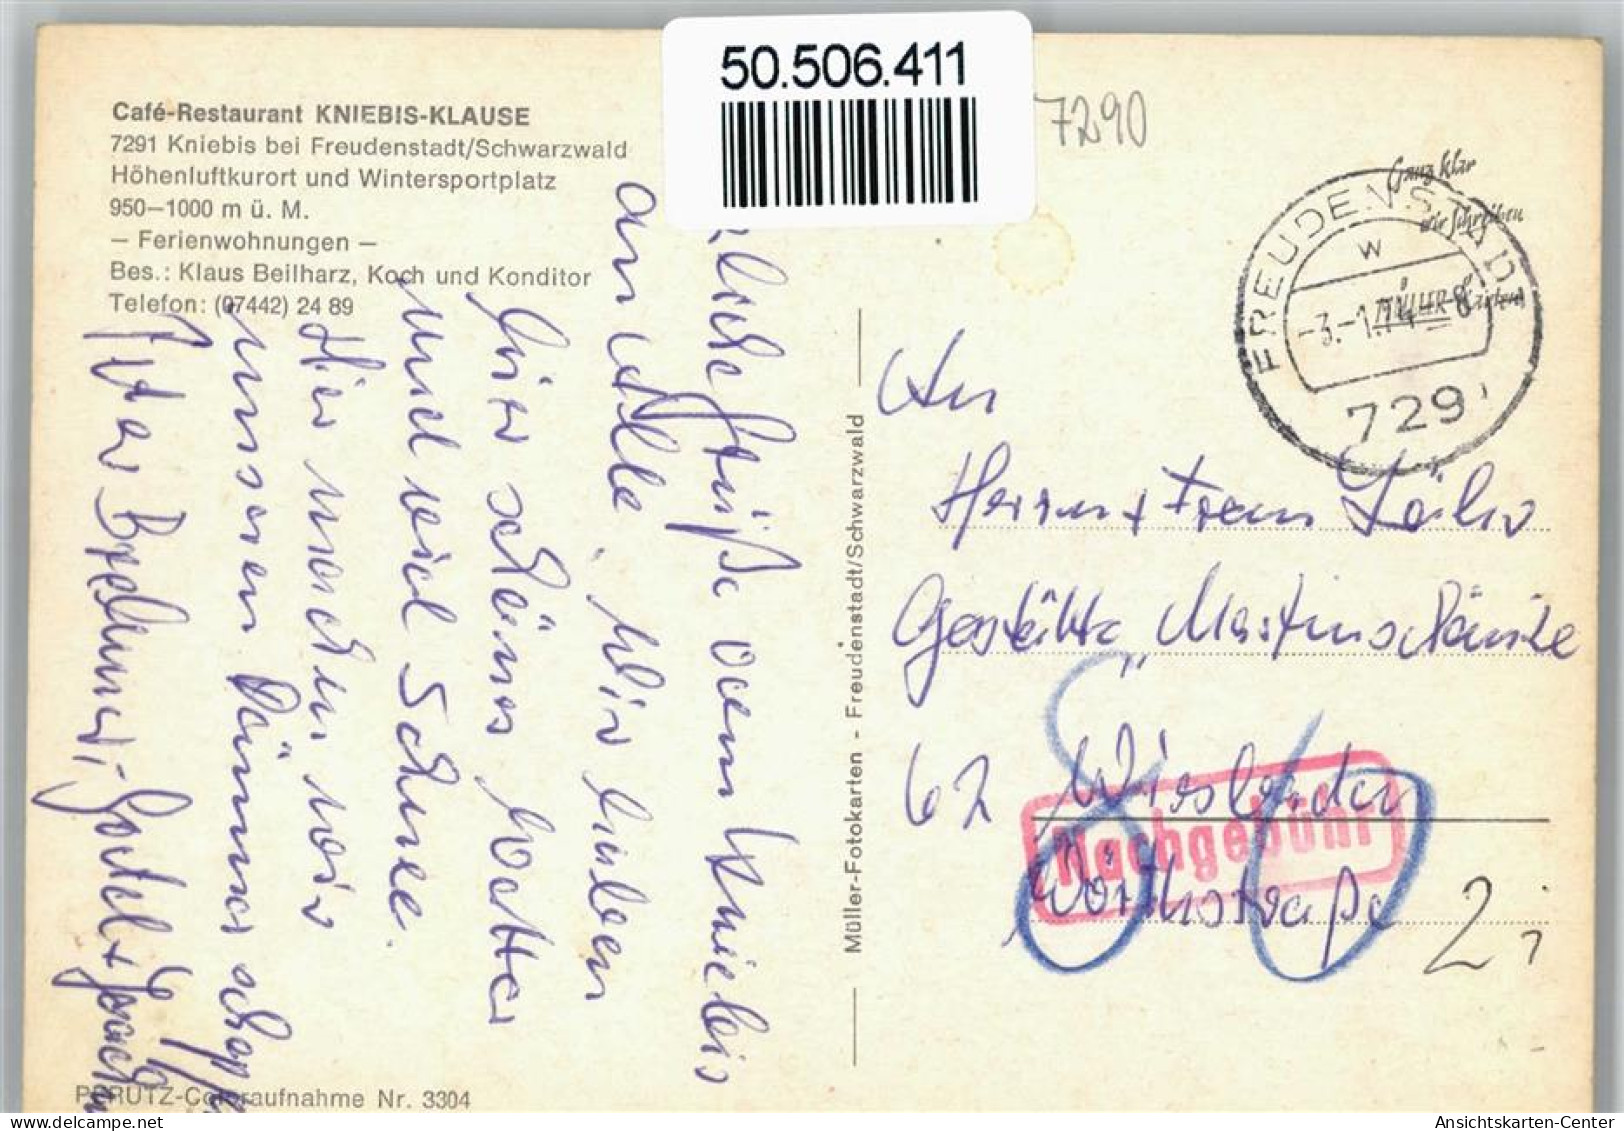 50.506.411
7290
Café-Restaurant KNIEBIS-KLAUSE
7291 Kniebis bei Freudenstadt/Schwarzwald
Höhenluftkurort und Wintersportplatz
950—1000 m ü. M.
— Ferienwohnungen —
Bes.: Klaus Beilharz, Koch und Konditor
Telefon: (07442) 24 89
Grüße vom Kniebis
an Alle. Wir haben
hier schönes Wetter
und viel Schnee.
Hier machen wir
unseren
Müller-Fotokarten - Freudenstadt/Schwarzwald
Ganz klar
wir schreiben
MÜLLER Karten
FREUDENSTADT
w
729
An
Herrn + Frau
Gaststätte „Martinsschänke
62 Wiesbaden
Nachgebühr
Wörthstraße
80
PERUTZ-Coloraufnahme Nr. 3304
Ansichtskarten-Center